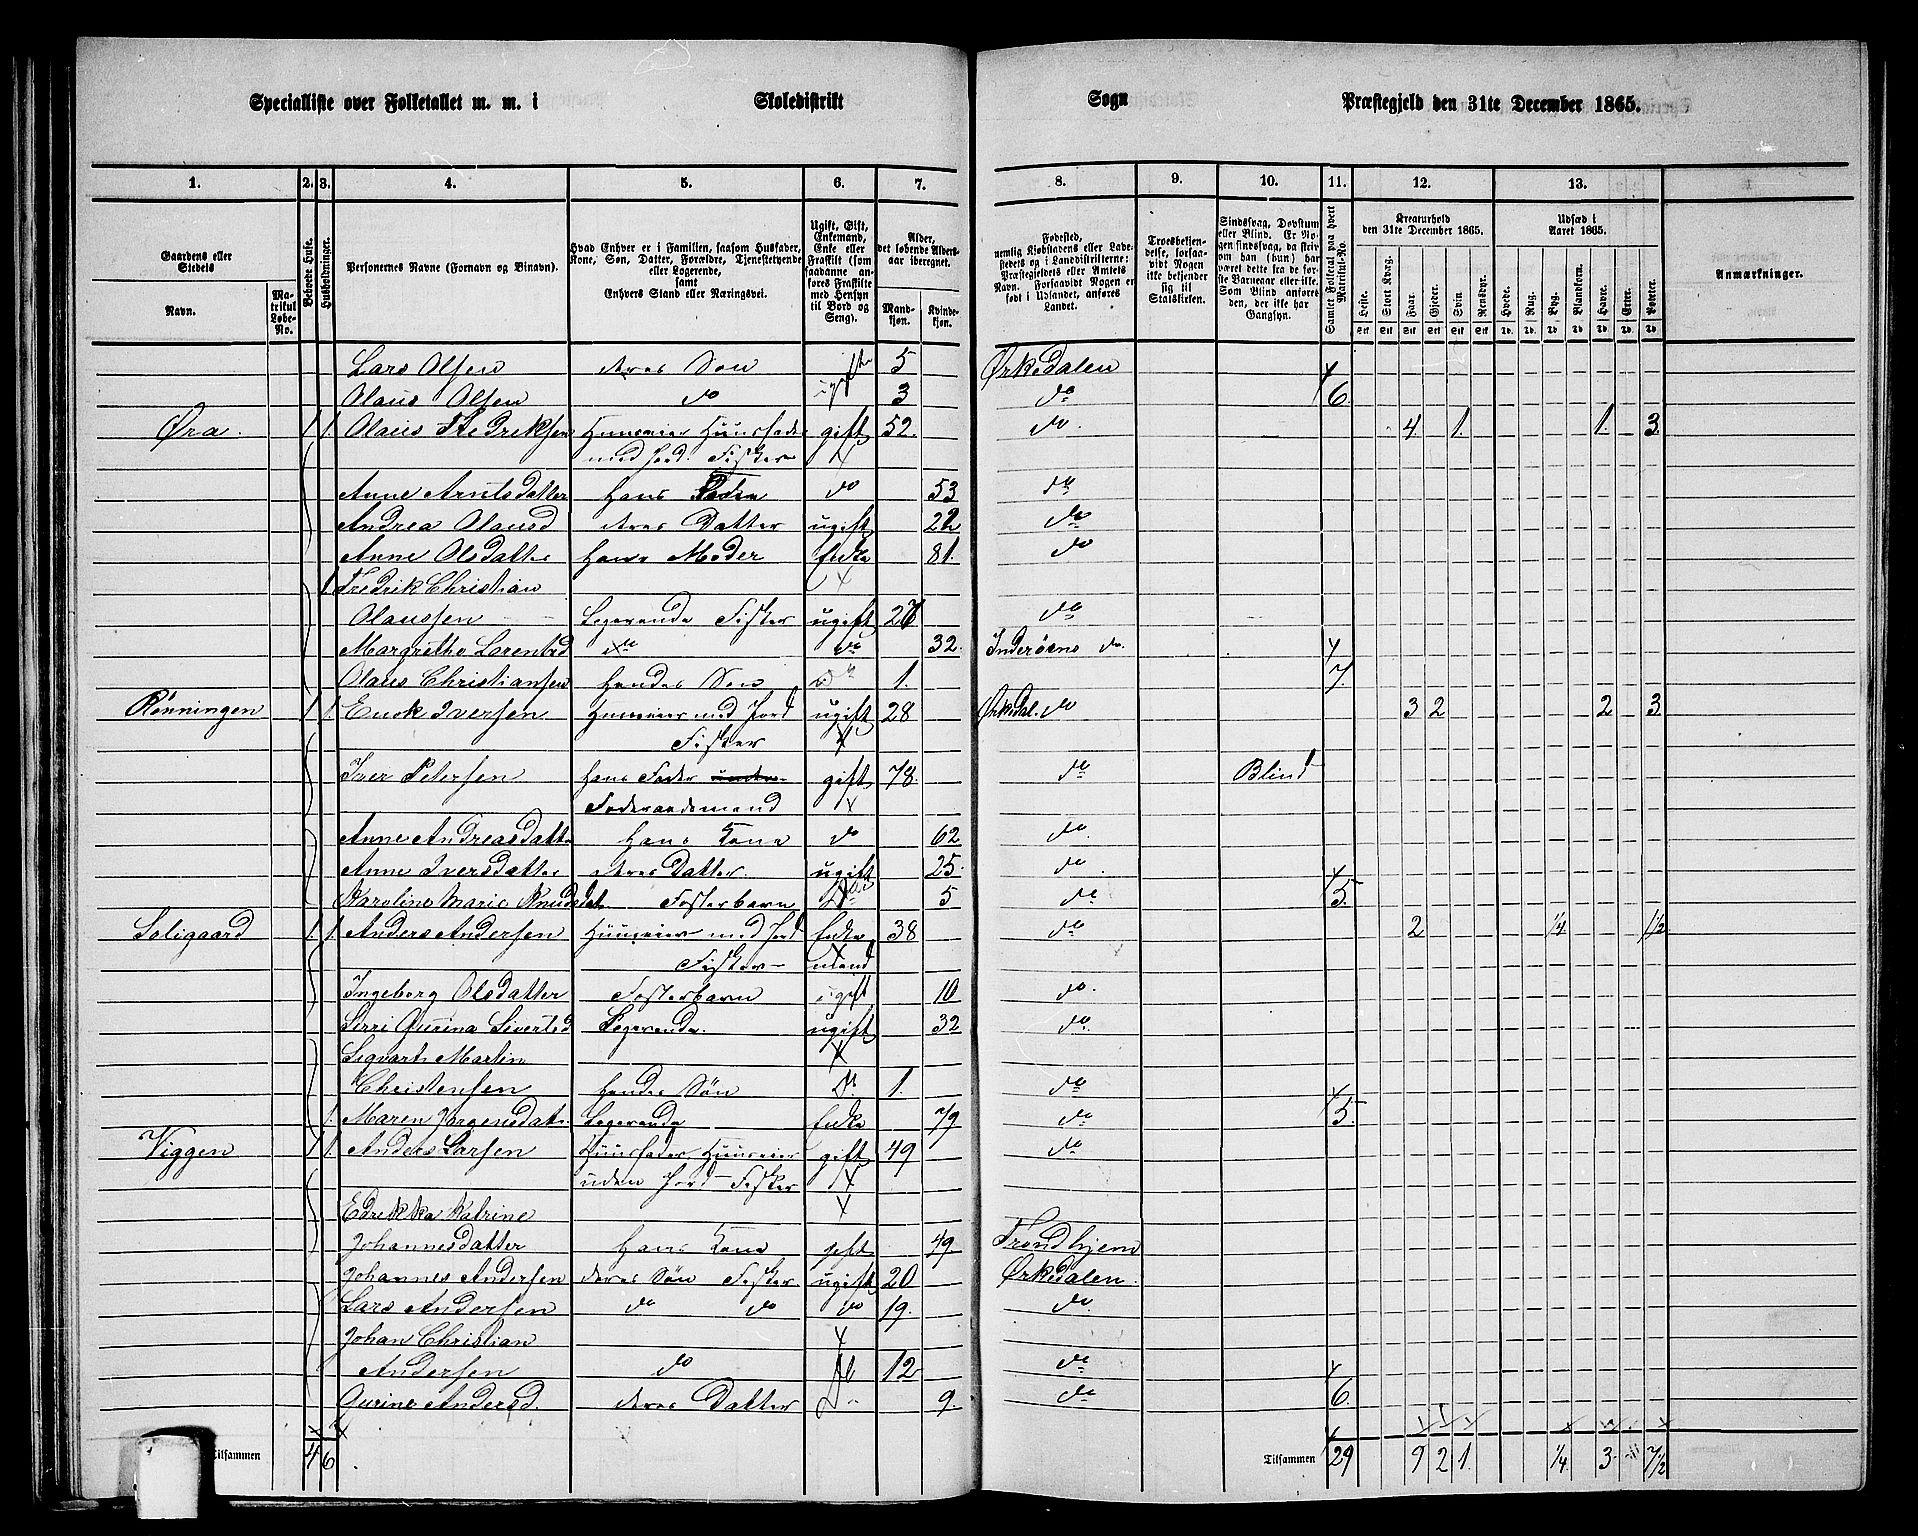 Specialliste over Folketallet m. m. i Skoledistrikt Sogn Præstegjeld den 31te December 1865.
1. 2. 3. 4. 5. 6. 7. 8. 9. 10. 11. 12. 13.
Gaardens eller Stedets
Navn. Matrikul Løbe-No.
Beboede Huse.
Husholdninger.
Personernes Navne (Fornavn og Binavn).
Hvad Enhver er i Familien, saasom Husfader, Kone, Søn, Datter, Forældre, Tjenestetyende eller Logerende, samt Enhvers Stand eller Næringsvei.
Ugift, Gift, Enkemand, Enke eller Fraskilt (som saadanne anføres Fraskilte med Hensyn til Bord og Seng).
Alder, det løbende Alders-aar iberegnet.
Mandkjøn. Kvindekjøn.
Fødested, nemlig Kjøbstadens eller Ladestedets og i Landdistrikterne: Præstegjeldets eller Amtets Navn. Forsaavidt Nogen er født i Udlandet, anføres Landet.
Troesbekjendelse, forsaavidt Nogen ikke bekjender sig til Statskirken.
Sindssvag, Døvstum eller Blind. Er Nogen sindssvag, da skrives om han (hun) har været dette fra de første Barneaar eller ikke. Som Blind anføres den, der ikke har Gangsyn.
Samlet Folketal paa hvert Matrikul-No.
Kreaturhold den 31te December 1865.
Heste. Stort Kvæg. Faar. Gjeder. Svin. Rensdyr.
Udsæd i Aaret 1865.
Hvede. Rug. Byg. Blandkorn. Havre. Erter. Poteter.
Anmærkninger.
Lars Olsen deres Søn ugift 5 Ørkedalen
Olaus Olsen do ugift 3 do 6.
Øra. 1. 1. Olaus Fredriksen Huusmier Huusfader gift 52. do. 4. 1. 1. 3.
med Jord. Fisker
Anne Arntsdatter Hans Kone do 53 do
Andrea Olausd deres Datter ugift 22 do
Anne Olsdatter Hans Moder Enke 81. do
1. Fredrik Christian
Olaussen Logerende Fisker ugift 27 do
Margrethe Larentsd do do 32. Inderøens do.
Olaus Christiansen Hendes Søn do 1. 7.
Rønningen 1 1. Enok Iversen Huusmier med Jord ugift 28 Ørkedal. do 3 2 2 3
Fisker
Iver Petersen Hans Fader gift 78. do Blind
Foderaadsmand
Anne Andreasdatter Hans Kone do 62 do.
Anne Iversdatter deres Datter. ugift 25. do.
Karoline Marie Knudsdat Fosterbarn do 5 do 5.
Soligaard 1. 1. Anders Andersen Huusmier med Jord Enke 38 do 2 1/4 1 1/2
Fisker mand
Ingeborg Olsdatter Fosterbarn ugift 10 do.
Sirri Gurina Sivertsd Logerende. ugift 32 do.
Sigvart Martin
Christensen Hendes Søn do. 1. do
1. Maren Jørgensdatr Logerende Enke 79 do 5.
Viggen 1 1. Anders Larsen Huusfader, Huusmier gift 49 do
uden Jord Fisker
Edrikka Katrine
Johannesdatter Hans Kone gift 49. Trondhjem
Johannes Andersen deres Søn Fisker. ugift 20 Ørkedalen.
Lars Andersen do do do 19. do.
Johan Christian
Andersen do do 12 do
Gurine Andersd. deres Datter do 9. do 6.
Tilsammen 4 6 Tilsammen 29 9 2 1. 1/4 3. 7 1/2